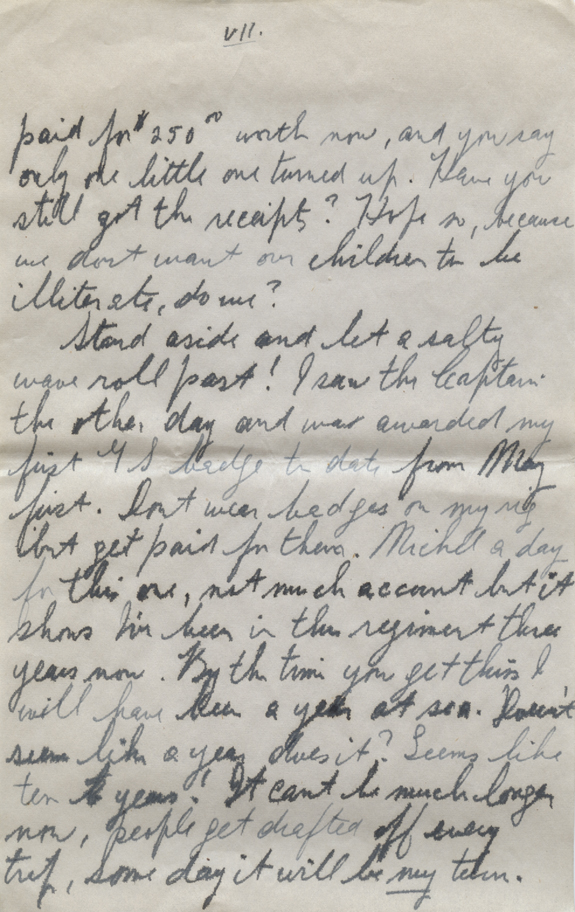 VII.
paid for $250 00 worth now, and you say
only one little one turned up. Have you
still got the receipts? Hope so, because
we dont want our children to be
illiterate, do we?
Stand aside and let a salty
wave roll past! I saw the Captain
the other day and was awarded my
first G S badge to date from May
first. Dont wear badges on my rig
but get paid for them. Nickel a day
for this one, not much account but it
shows I've been in this regiment three
years now. By the time you get this I
will have been a year at sea. Doesn't
seem like a year does it? Seems like
ten years! It cant be much longer
now, people get drafted off every
trip, some day it will be my turn.